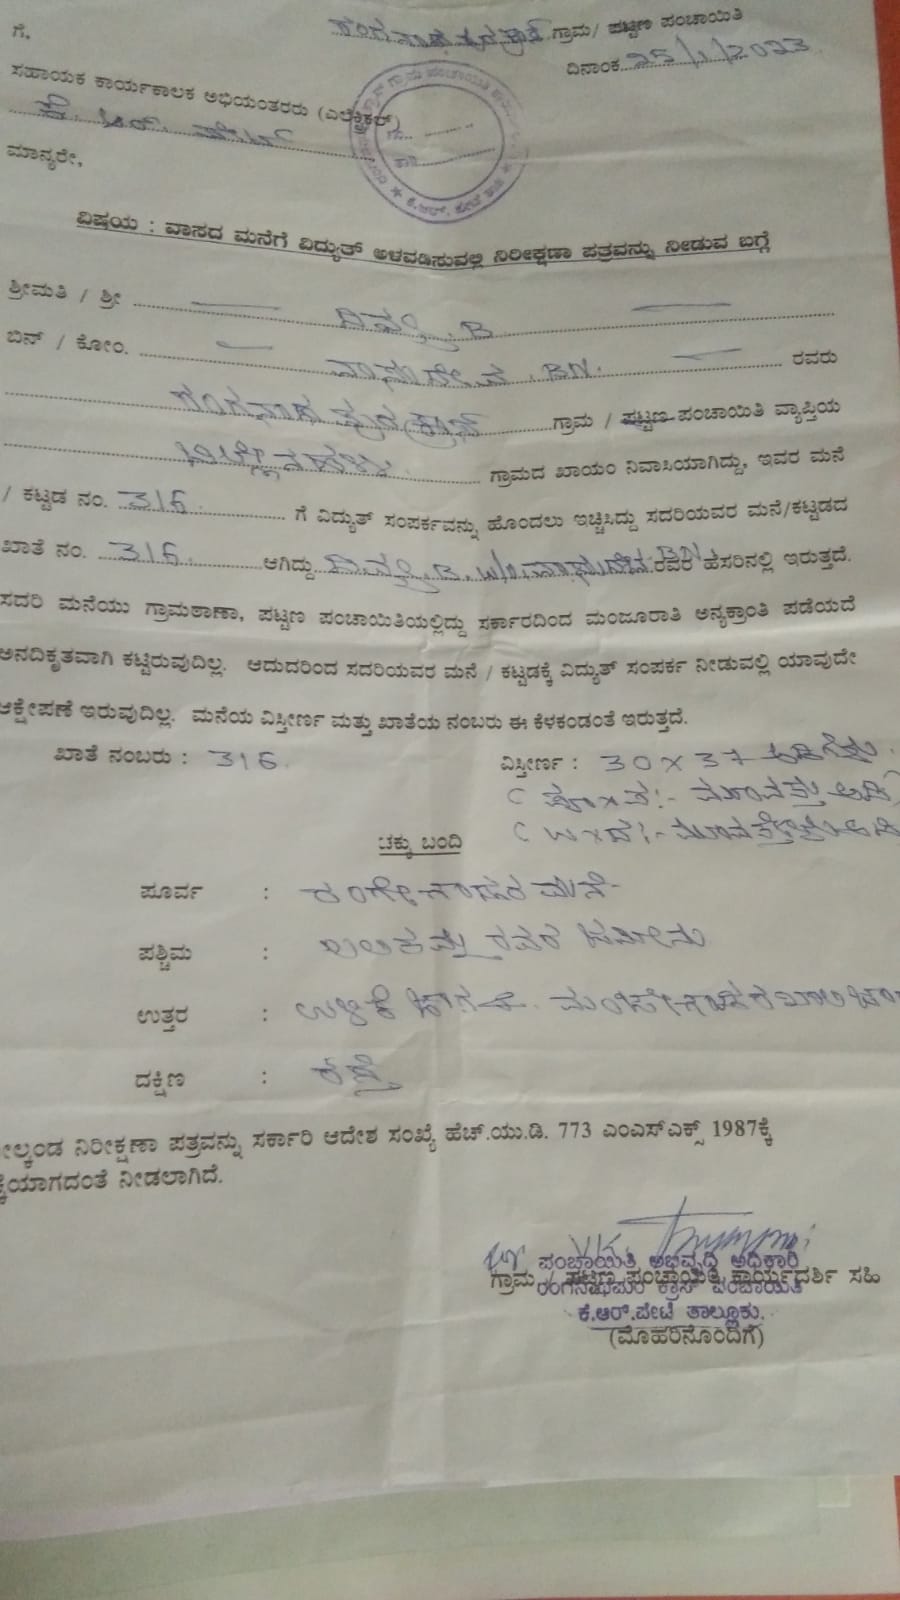 ಗೆ,
ಗ್ರಾಮ/ ಪಟ್ಟಣ ಪಂಚಾಯಿತಿ
ದಿನಾಂಕ 25/1/2023
ಸಹಾಯಕ ಕಾರ್ಯಕಾಲಕ ಅಭಿಯಂತರರು (ಎಲೆಕ್ಟ್ರಿಕಲ್)
ಕೆ. ಆರ್. ಪೇಟೆ
ಮಾನ್ಯರೇ,
ವಿಷಯ : ವಾಸದ ಮನೆಗೆ ವಿದ್ಯುತ್ ಅಳವಡಿಸುವಲ್ಲಿ ನಿರೀಕ್ಷಣಾ ಪತ್ರವನ್ನು ನೀಡುವ ಬಗ್ಗೆ
ಶ್ರೀಮತಿ / ಶ್ರೀ B
ಬಿನ್ / ಕೋಂ. ವಾಸುದೇವ . BN. ರವರು
ರಂಗನಾಥಪುರ ಕ್ರಾಸ್ ಗ್ರಾಮ / ಪಟ್ಟಣ ಪಂಚಾಯಿತಿ ವ್ಯಾಪ್ತಿಯ
ಗ್ರಾಮದ ಖಾಯಂ ನಿವಾಸಿಯಾಗಿದ್ದು, ಇವರ ಮನೆ
/ ಕಟ್ಟಡ ನಂ. 316 ಗೆ ವಿದ್ಯುತ್ ಸಂಪರ್ಕವನ್ನು ಹೊಂದಲು ಇಚ್ಚಿಸಿದ್ದು ಸದರಿಯವರ ಮನೆ/ಕಟ್ಟಡದ
ಖಾತೆ ನಂ. 316 ಆಗಿದ್ದು B. W/o ವಾಸುದೇವ BN ರವರ ಹೆಸರಿನಲ್ಲಿ ಇರುತ್ತದೆ.
ಸದರಿ ಮನೆಯು ಗ್ರಾಮಠಾಣಾ, ಪಟ್ಟಣ ಪಂಚಾಯಿತಿಯಲ್ಲಿದ್ದು ಸರ್ಕಾರದಿಂದ ಮಂಜೂರಾತಿ ಅನ್ಯಕ್ರಾಂತಿ ಪಡೆಯದೆ
ಅನದಿಕೃತವಾಗಿ ಕಟ್ಟಿರುವುದಿಲ್ಲ. ಆದುದರಿಂದ ಸದರಿಯವರ ಮನೆ / ಕಟ್ಟಡಕ್ಕೆ ವಿದ್ಯುತ್ ಸಂಪರ್ಕ ನೀಡುವಲ್ಲಿ ಯಾವುದೇ
ಆಕ್ಷೇಪಣೆ ಇರುವುದಿಲ್ಲ. ಮನೆಯ ವಿಸ್ತೀರ್ಣ ಮತ್ತು ಖಾತೆಯ ನಂಬರು ಈ ಕೆಳಕಂಡಂತೆ ಇರುತ್ತದೆ.
ಖಾತೆ ನಂಬರು : 316. ವಿಸ್ತೀರ್ಣ : 30 X 37 ಅಡಿಗಳು.
(ಪೂ X ಪ :- ಮೂವತ್ತು ಅಡಿ)
(ಉ X ದ :- ಮೂವತ್ತೇಳು ಅಡಿ
ಚಕ್ಕು ಬಂದಿ
ಪೂರ್ವ : ಮನೆ
ಪಶ್ಚಿಮ : ರವರ ಜಮೀನು
ಉತ್ತರ : ಉಳಿಕೆ ಖಾಲಿ
ದಕ್ಷಿಣ : ರಸ್ತೆ
ಲ್ಕಂಡ ನಿರೀಕ್ಷಣಾ ಪತ್ರವನ್ನು ಸರ್ಕಾರಿ ಆದೇಶ ಸಂಖ್ಯೆ ಹೆಚ್.ಯು.ಡಿ. 773 ಎಂಎಸ್ಎಕ್ಸ್ 1987ಕ್ಕೆ
ಯಾಗದಂತೆ ನೀಡಲಾಗಿದೆ.
ಪಂಚಾಯಿತಿ ಅಭಿವೃದ್ಧಿ ಅಧಿಕಾರಿ
ಗ್ರಾಮ ಪಟ್ಟಣ ಪಂಚಾಯಿತಿ ಕಾರ್ಯದರ್ಶಿ ಸಹಿ
ರಂಗನಾಥಪುರ ಕ್ರಾಸ್ ಪಂಚಾಯಿತಿ
ಕೆ.ಆರ್.ಪೇಟೆ ತಾಲ್ಲೂಕು.
(ಮೊಹರಿನೊಂದಿಗೆ)